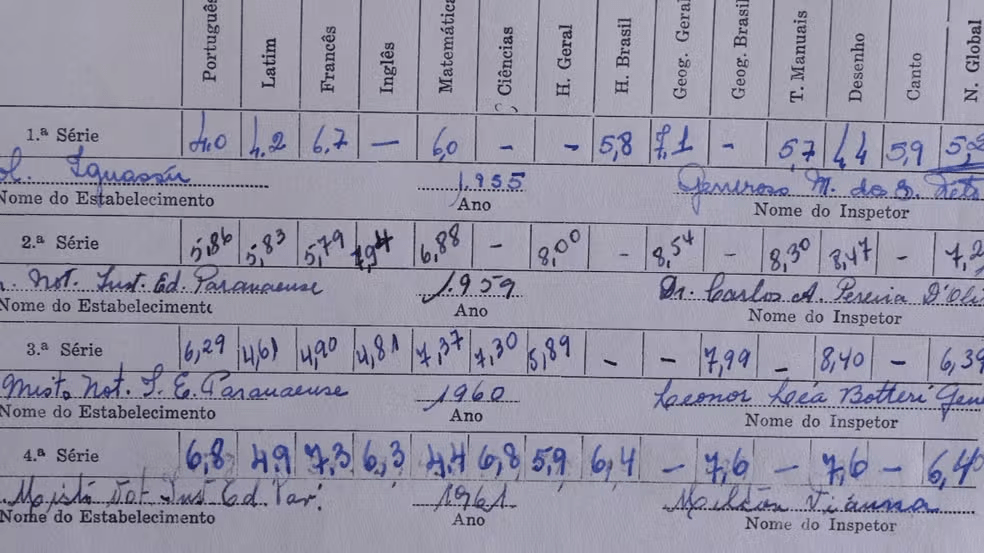 Português Latim Francês Inglês Matemática Ciências H. Geral H. Brasil Geog. Geral Geog. Brasil T. Manuais Desenho Canto N. Global
1.ª Série 4.0 4.2 6.7 — 6,0 - - 5,8 7,1 - 5,7 4,4 5,9
Iguassú 1.955 Generoso M. dos S.
Nome do Estabelecimento Ano Nome do Inspetor
2.ª Série 5,86 5,83 5,79 7,94 6,88 - 8,00 - 8,54 - 8,30 8,47 - 7,2
Not. Inst. Ed. Paranaense 1.959 Dr. Carlos A. Pereira D'Oli
Nome do Estabelecimento Ano Nome do Inspetor
3.ª Série 6,29 4,61 4,90 4,81 7,37 7,30 5,89 - - 7,99 - 8,40 - 6,39
Mist. Not. I. E. Paranaense 1960 Leonor Léa Botteri
Nome do Estabelecimento Ano Nome do Inspetor
4.ª Série 6,8 4,9 7,3 6,3 4,4 6,8 5,9 6,4 - 7,6 - 7,6 - 6,4
Not Inst Ed. Par. 1961 Milton Vianna
Nome do Estabelecimento Ano Nome do Inspetor